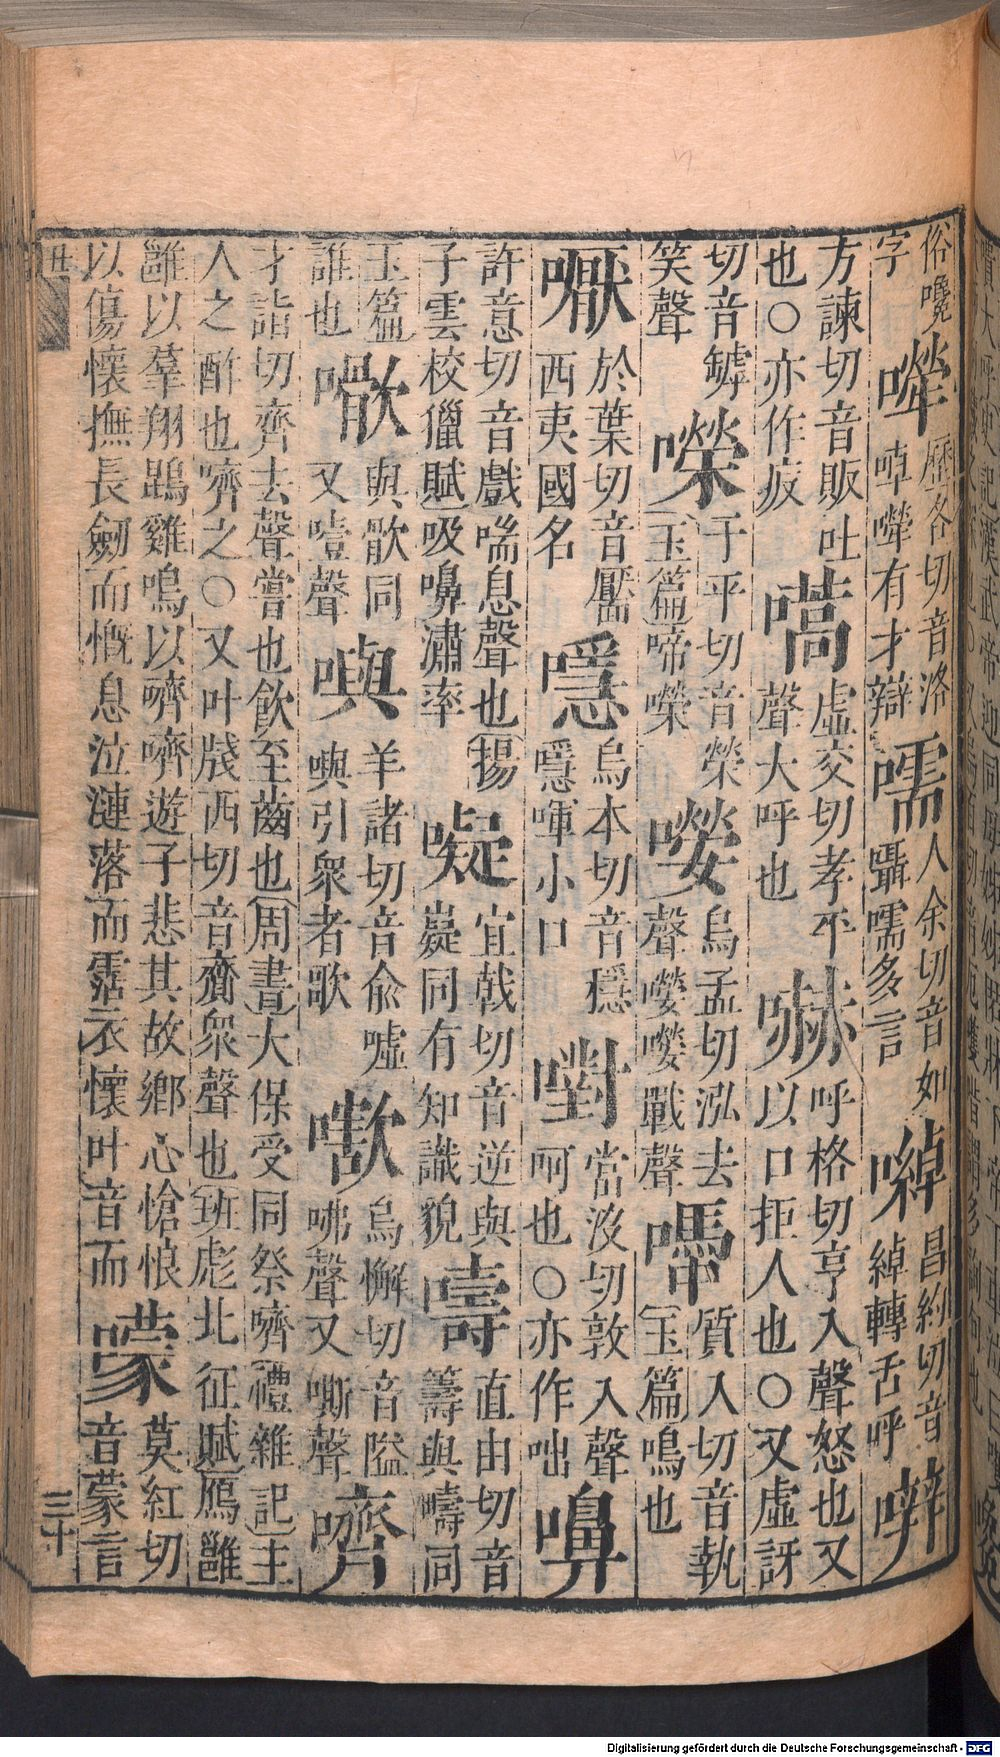 俗嚵
字
歷各切音洛
有才辯
嚅
人余切音如
囁嚅多言
昌約切音
綽轉舌呼
方諫切音販吐
也○亦作疲
嚆
虛交切孝平
聲大呼也
嚇
呼格切亨入聲怒也又
以口拒人也○又虛訝
切音罅
笑聲
于平切音榮
玉篇啼
烏孟切泓去
聲戰聲
質入切音執
玉篇鳴也
嚈
於葉切音靨
西夷國名
烏本切音穩
小口
嚉
當沒切敦入聲
呵也○亦作咄
嚊
許意切音戲喘息聲也揚
子雲校獵賦吸嚊瀟率
宜戟切音逆與
嶷同有知識貌
嚋
直由切音
籌與疇同
玉篇
誰也
與歃同
又噎聲
羊諸切音俞噓
引衆者歌
烏懈切音隘
咈聲又嘶聲
嚌
才詣切齊去聲嘗也飲至齒也周書大保受同祭嚌禮雜記主
人之酢也嚌之○又叶牋西切音齎衆聲也班彪北征賦鴈雝
雝以羣翔鵾雞鳴以嚌嚌遊子悲其故鄉心愴悢
以傷懷撫長劒而慨息泣漣落而霑衣懷叶音而
莫紅切
音蒙言
丑
三十
Digitalisierung gefördert durch die Deutsche Forschungsgemeinschaft - DFG